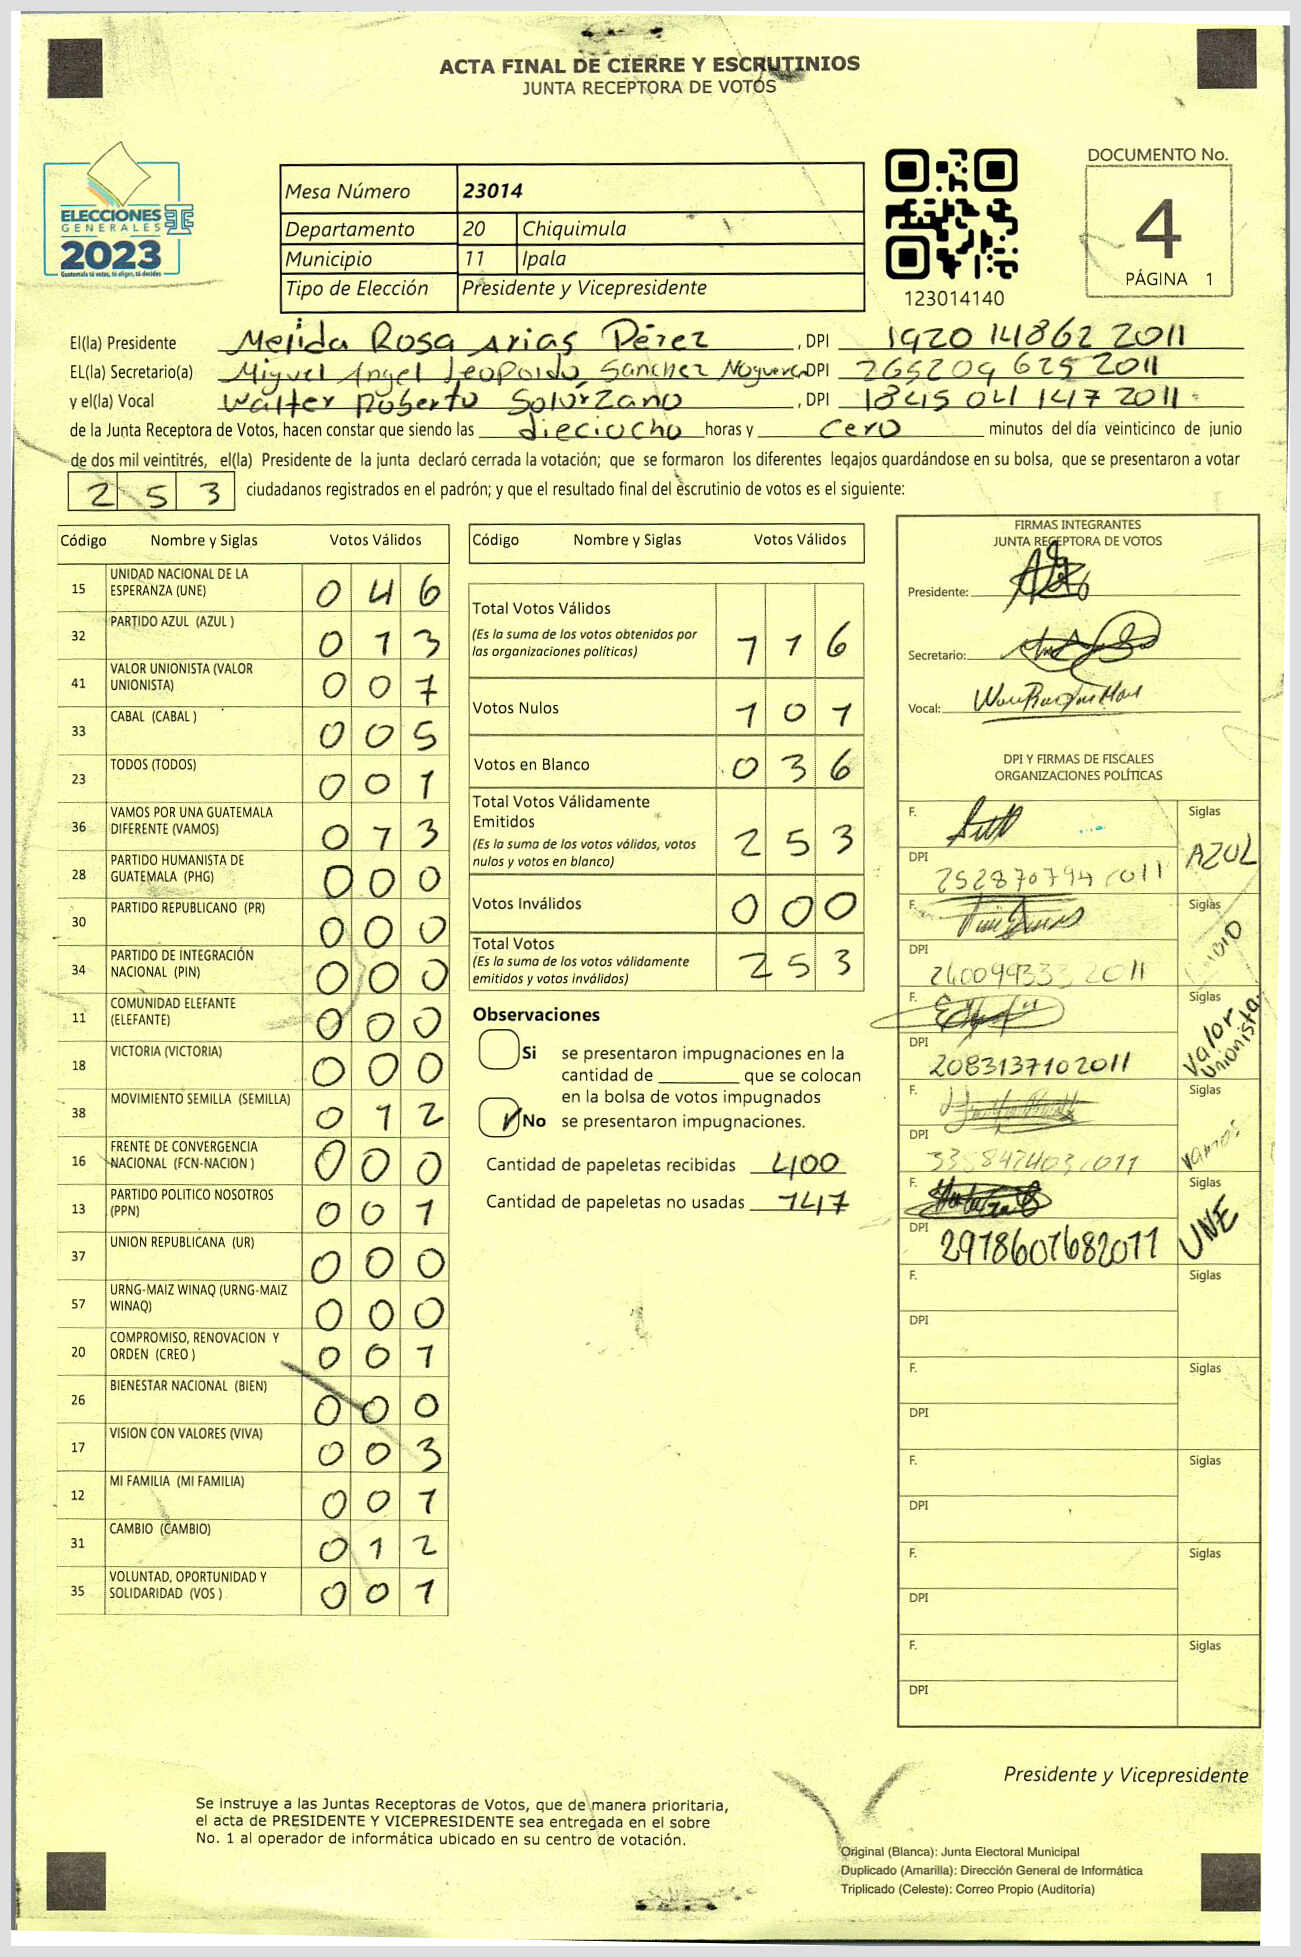 ACTA FINAL DE CIERRE Y ESCRUTINIOS
JUNTA RECEPTORA DE VOTOS
ELECCIONES
GENERALES
2023
Guatemala tú votas, tú eliges, tú decides
Mesa Número 23014
Departamento 20 Chiquimula
Municipio 11 Ipala
Tipo de Elección Presidente y Vicepresidente
123014140
DOCUMENTO No.
4
PÁGINA 1
El(la) Presidente Melida Rosa Arias Pérez, DPI 1920 14862 2011
EL(la) Secretario(a) Miguel Angel Leopoldo Sanchez Noguera DPI 265209 625 2011
y el(la) Vocal Walter Roberto Solorzano, DPI 1845 041 147 2011
de la Junta Receptora de Votos, hacen constar que siendo las dieciocho horas y cero minutos del día veinticinco de junio
de dos mil veintitrés, el(la) Presidente de la junta declaró cerrada la votación; que se formaron los diferentes legajos guardándose en su bolsa, que se presentaron a votar
253 ciudadanos registrados en el padrón; y que el resultado final del escrutinio de votos es el siguiente:
Código Nombre y Siglas Votos Válidos
15 UNIDAD NACIONAL DE LA ESPERANZA (UNE) 046
32 PARTIDO AZUL (AZUL ) 013
41 VALOR UNIONISTA (VALOR UNIONISTA) 007
33 CABAL (CABAL ) 005
23 TODOS (TODOS) 001
36 VAMOS POR UNA GUATEMALA DIFERENTE (VAMOS) 013
28 PARTIDO HUMANISTA DE GUATEMALA (PHG) 000
30 PARTIDO REPUBLICANO (PR) 000
34 PARTIDO DE INTEGRACIÓN NACIONAL (PIN) 000
11 COMUNIDAD ELEFANTE (ELEFANTE) 000
18 VICTORIA (VICTORIA) 000
38 MOVIMIENTO SEMILLA (SEMILLA) 012
16 FRENTE DE CONVERGENCIA NACIONAL (FCN-NACION ) 000
13 PARTIDO POLITICO NOSOTROS (PPN) 001
37 UNION REPUBLICANA (UR) 000
57 URNG-MAIZ WINAQ (URNG-MAIZ WINAQ) 000
20 COMPROMISO, RENOVACION Y ORDEN (CREO ) 001
26 BIENESTAR NACIONAL (BIEN) 000
17 VISION CON VALORES (VIVA) 003
12 MI FAMILIA (MI FAMILIA) 001
31 CAMBIO (CAMBIO) 012
35 VOLUNTAD, OPORTUNIDAD Y SOLIDARIDAD (VOS ) 001
Código Nombre y Siglas Votos Válidos
Total Votos Válidos
(Es la suma de los votos obtenidos por
las organizaciones políticas) 116
Votos Nulos 101
Votos en Blanco 036
Total Votos Válidamente
Emitidos
(Es la suma de los votos válidos, votos
nulos y votos en blanco) 253
Votos Inválidos 000
Total Votos
(Es la suma de los votos válidamente
emitidos y votos inválidos) 253
Observaciones
Si se presentaron impugnaciones en la
cantidad de ________ que se colocan
en la bolsa de votos impugnados
No se presentaron impugnaciones.
Cantidad de papeletas recibidas 400
Cantidad de papeletas no usadas 147
FIRMAS INTEGRANTES
JUNTA RECEPTORA DE VOTOS
Presidente:
Secretario:
Vocal:
DPI Y FIRMAS DE FISCALES
ORGANIZACIONES POLÍTICAS
F. Siglas
DPI AZUL
F. Siglas
DPI
F. Siglas
DPI 2083137102011 Valor Unionista
F. Siglas
DPI Vamos
F. Siglas
DPI 2978601682011 UNE
F. Siglas
DPI
F. Siglas
DPI
F. Siglas
DPI
F. Siglas
DPI
F. Siglas
DPI
Presidente y Vicepresidente
Se instruye a las Juntas Receptoras de Votos, que de manera prioritaria,
el acta de PRESIDENTE Y VICEPRESIDENTE sea entregada en el sobre
No. 1 al operador de informática ubicado en su centro de votación.
Original (Blanca): Junta Electoral Municipal
Duplicado (Amarilla): Dirección General de Informática
Triplicado (Celeste): Correo Propio (Auditoría)